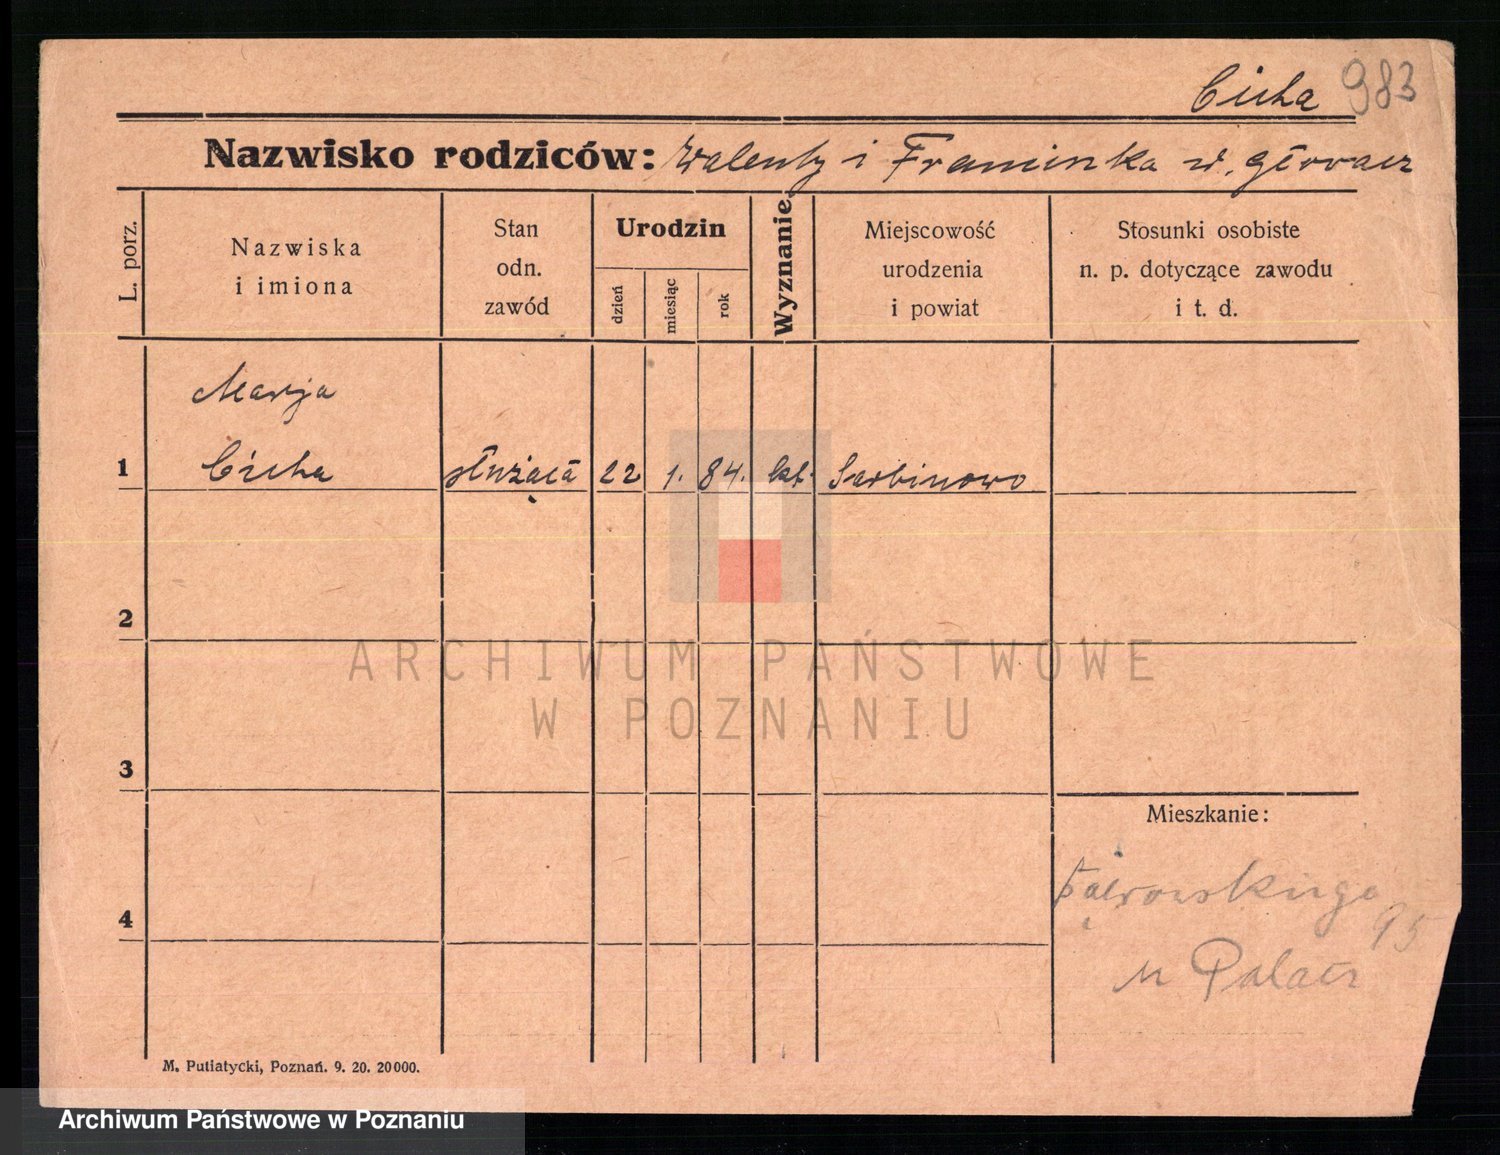 Cicha 983
Nazwisko rodziców: Walenty i Franciszka
L. porz.
Nazwiska
i imiona
Stan
odn.
zawód
Urodzin
dzień
miesiąc
rok
Wyznanie
Miejscowość
urodzenia
i powiat
Stosunki osobiste
n. p. dotyczące zawodu
i t. d.
Marja
1 Cicha służąca 22 1. 84. kat. Sarbinowo
2
3
4
Mieszkanie:
95
M. Putiatycki, Poznań. 9. 20. 20000.
ARCHIWUM PAŃSTWOWE
W POZNANIU
Archiwum Państwowe w Poznaniu